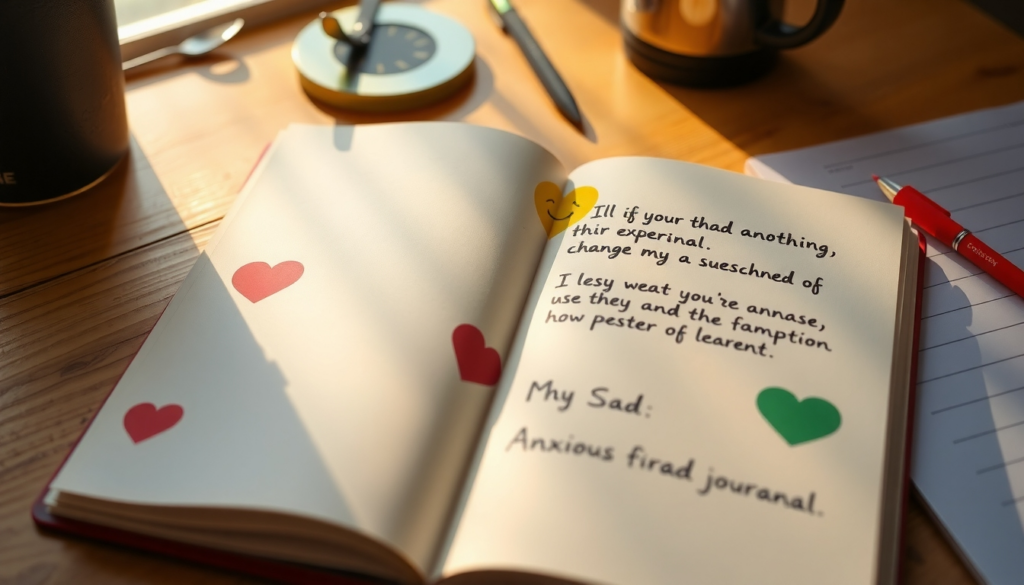 Ill if your thad anothing,
thir experinal.
change my a sueschned of
I lesy weat you're annase,
use they and the famption
how pester of learent.
Mhy Sad:
Anxious firad jouranal.